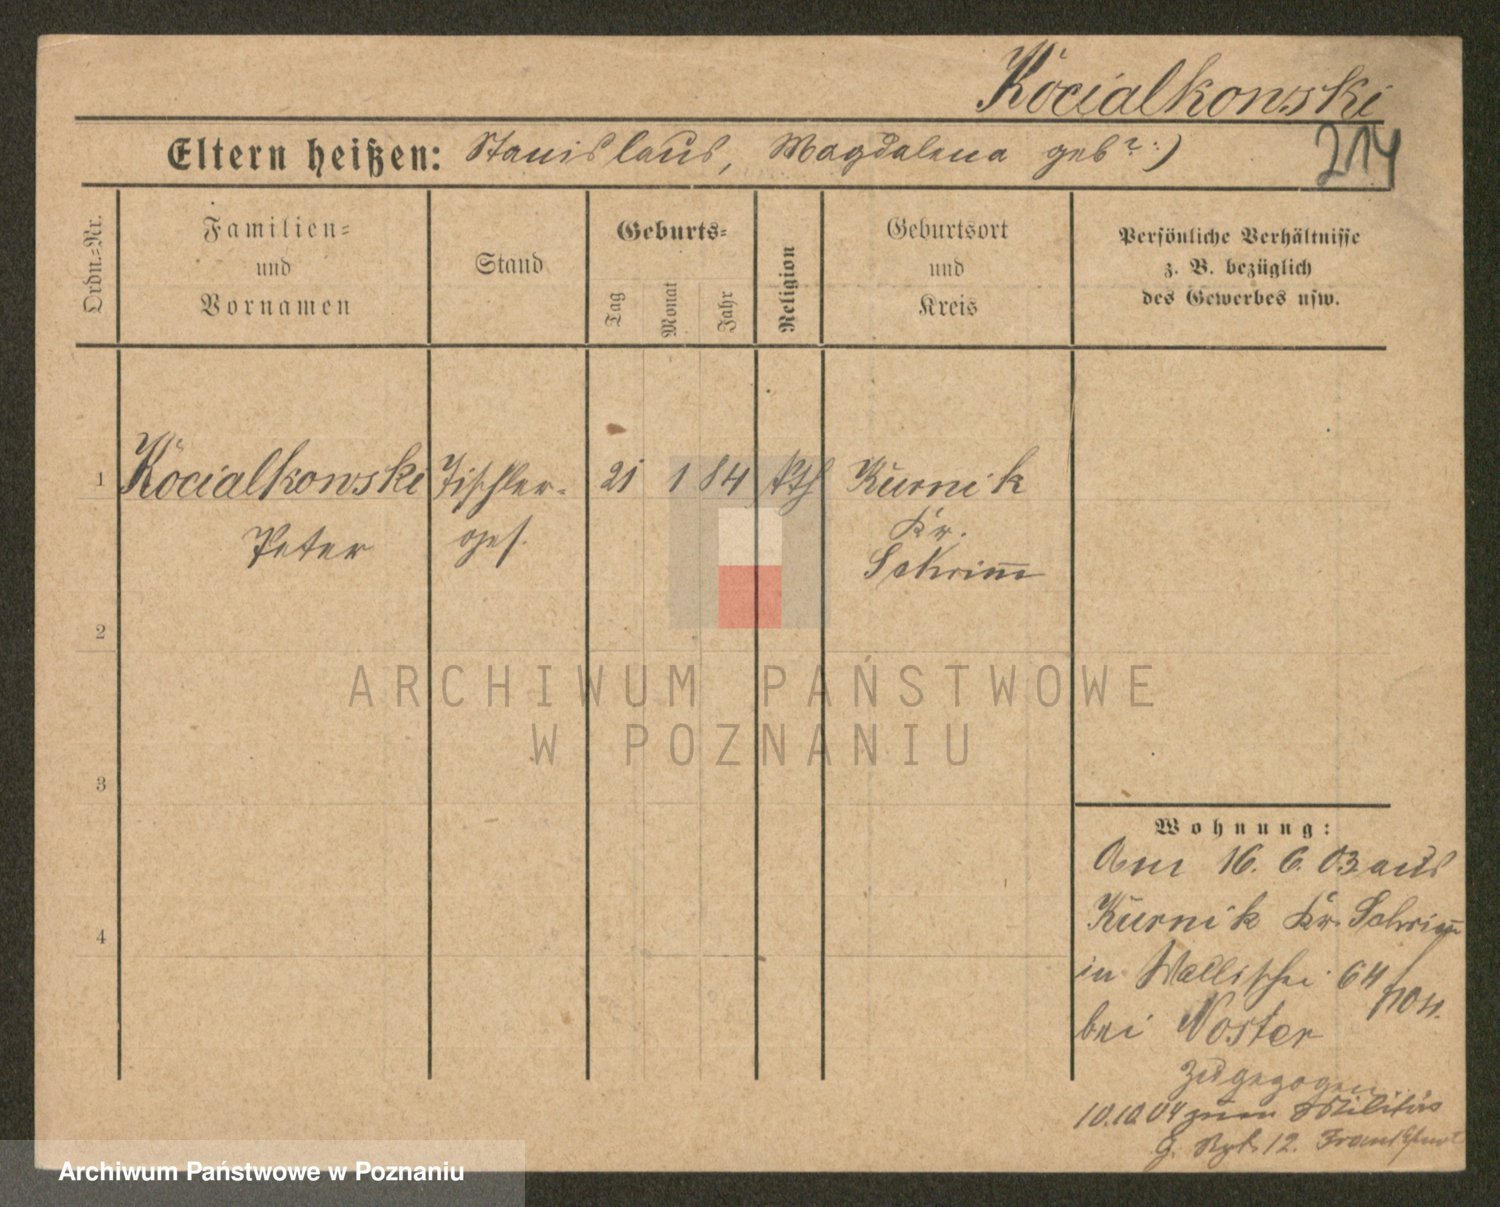 Kocialkowski
Eltern heißen: Stanislaus, Magdalena geb?:)
214
Ordn.-Nr.
Familien-
und
Vornamen
Stand
Geburts-
Tag
Monat
Jahr
Religion
Geburtsort
und
Kreis
Persönliche Verhältnisse
z. B. bezüglich
des Gewerbes usw.
1 Kocialkowski Tischler- 21 1 84 kth Kurnik
Peter ges. Kr.
Schrimm
2
3
4
ARCHIWUM PAŃSTWOWE
W POZNANIU
Wohnung:
Am 16. 6. 03 aus
Kurnik Kr. Schrimm
in Wallischei 64
bei Noster
zugezogen
10.10.04 zum Militär
12. Frankfurt
Archiwum Państwowe w Poznaniu